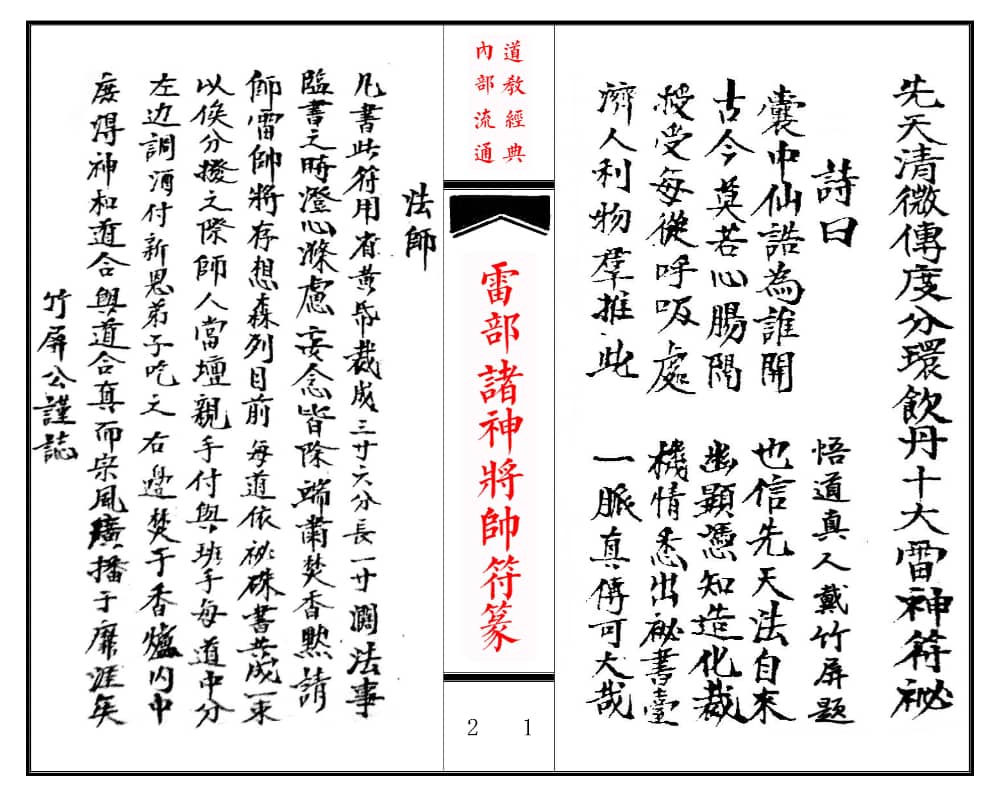 先天清微傳度分環飲丹十大雷神符祕
詩曰
悟道真人戴竹屏題
囊中仙誥為誰開 也信先天法自來
古今莫若心腸闊 幽顯憑知造化裁
授受每從呼吸處 機情悉出祕書臺
濟人利物群推此 一脈真傳可大哉
道教經典
內部流通
雷部諸神將帥符篆
1
2
法師
凡書此符用省黃帋裁成三寸六分長一寸濶法事
臨書之時澄心滌慮妄念皆除端肅焚香默請
師雷帥將存想森列目前每道依祕硃書共成一束
以俟分撥之際師人當壇親手付與班手每道中分
左边調酒付新恩弟子吃之右邊焚于香爐內中
度得神和道合與道合真而宗風廣播于靡涯矣
竹屏公謹誌